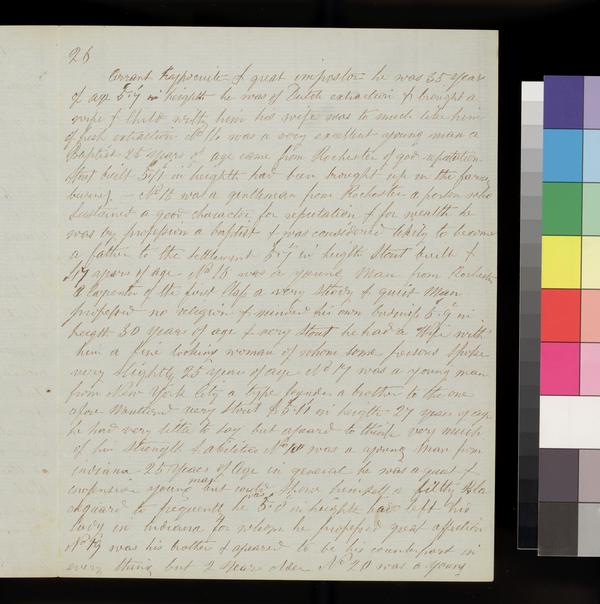 26
Errant Hypocrite & great impostor he was 35 year
of age 5'7 in heighth he was of Dutch extraction & brought a
wife & Child with him his wife was to much like him
of fresh extraction No 11 was a very excellent young man a
Baptist 25 Years of age came from Rochester of good reputation
Stout built 5'1 in heighth had been brought up in the farming
buisns]. — No 14 was a gentleman from Rochester a person who
sustained a good character for reputation & for wealth he
was by profession a baptist & was considered likely to become
a father to the settlement 5'7 in heigth Stout built &
years of age No 15 was a young Man from Rochester
a Carpenter of the first Class a very Steady & quiet Man
professed no religion & minded his own business 5'9 in
heigth 30 years of age & very Stout he had a Wife with
him a fine looking woman of whom some persons Spoke
very Slightly 25 Years of age No 17 was a young man
from New York City a type founder a brother to the one
afore Mantiond very Stout & 5'11 in heigth 27 year of age
he had very little to Say but apeard to think very much
of his Strength & abilities No 18 was a young Man from
indiana 25 Years of Age in general he was a quiet &
inofensive young man but could Show himself a filthy Bla
ckguard to frequently he was 5'8 in heighth had left his
lady in Indiana for whom he professed great affection
No 19 was his brother & apeared to be his counterpart in
every thing but 2 Years older No 20 was a Young